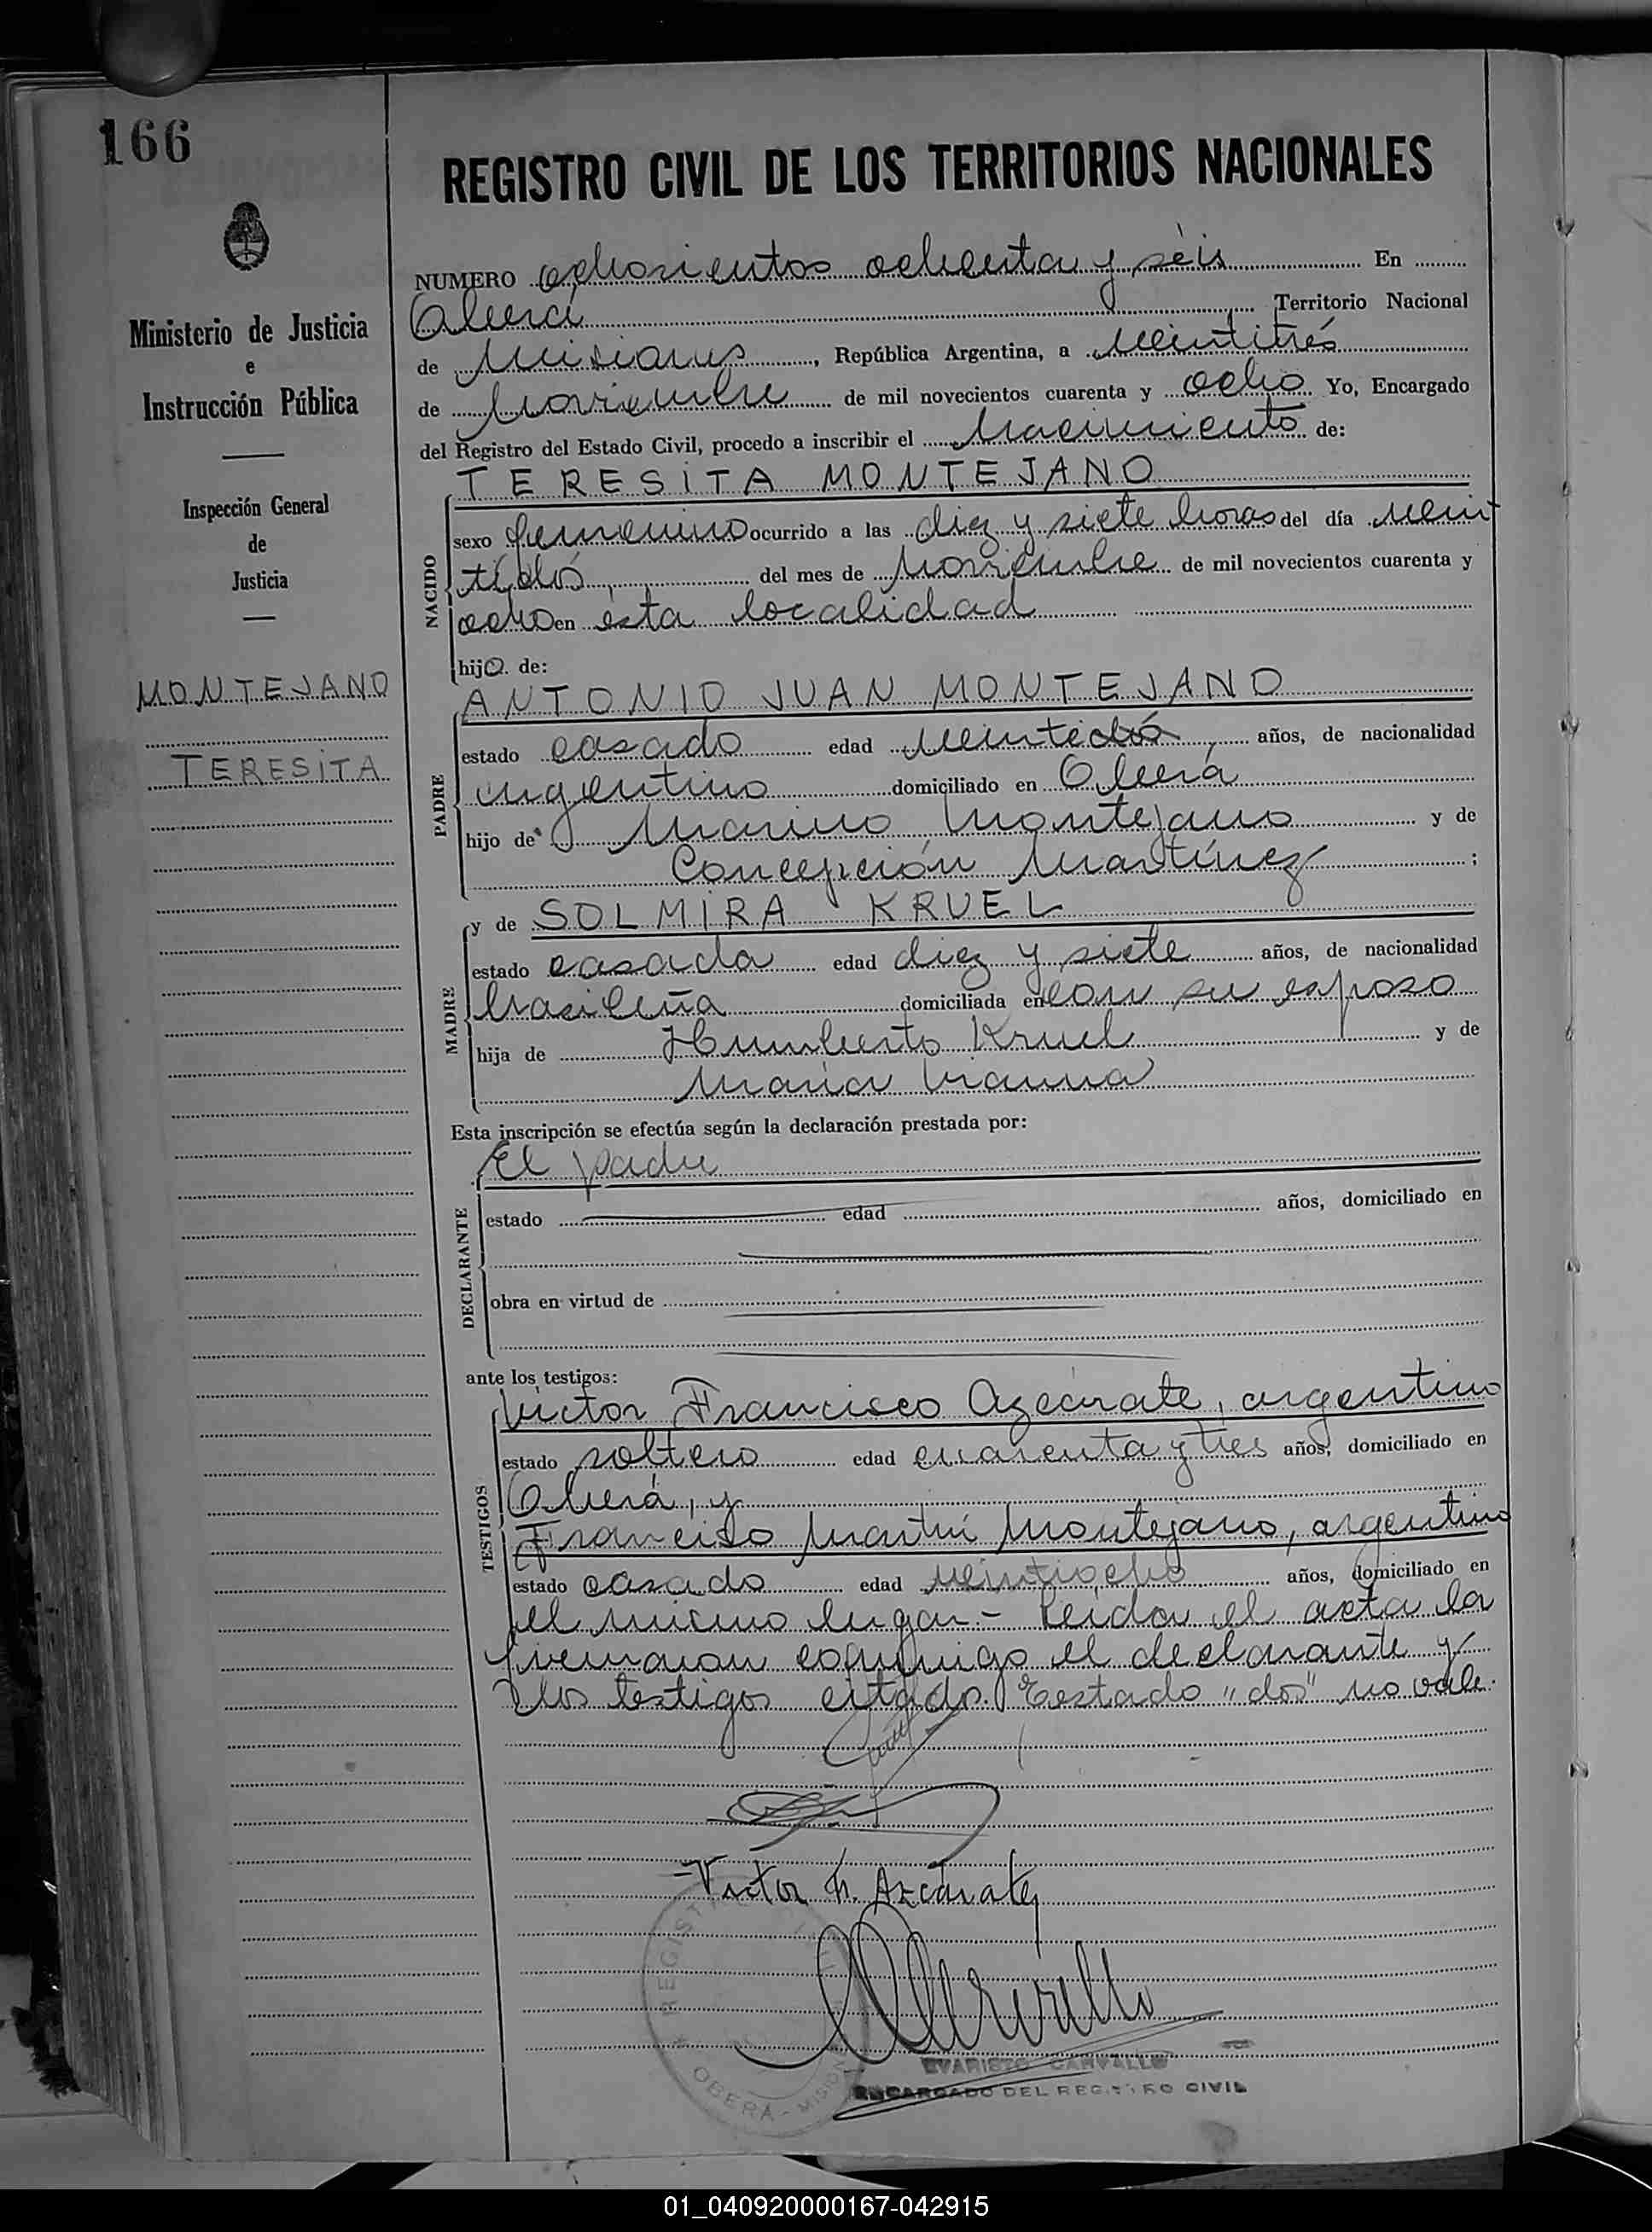 166
REGISTRO CIVIL DE LOS TERRITORIOS NACIONALES
Ministerio de Justicia
e
Instrucción Pública
Inspección General
de
Justicia
MONTEJANO
TERESITA
NUMERO ochosientos ochenta y séis En
Oberá Territorio Nacional
de Misiones, República Argentina, a veintitrés
de Noviembre de mil novecientos cuarenta y ocho Yo, Encargado
del Registro del Estado Civil, procedo a inscribir el Nacimiento de:
NACIDO
TERESITA MONTEJANO
sexo femenino ocurrido a las diez y siete horas del día vein
tidós, del mes de Noviembre de mil novecientos cuarenta y
ocho en ésta localidad
hijo de:
PADRE
ANTONIO JUAN MONTEJANO
estado casado edad veintidós, años, de nacionalidad
argentino domiciliado en Oberá
hijo de Marino Montejano y de
Concepción Martínez ;
MADRE
y de SOLMIRA KRUEL
estado casada edad diez y siete años, de nacionalidad
brasileña domiciliada en con su esposo
hija de Humberto Kruel y de
María
Esta inscripción se efectúa según la declaración prestada por:
DECLARANTE
El padre
estado edad años, domiciliado en
obra en virtud de
ante los testigos:
TESTIGOS
Victor Francisco Azcárate, argentino
estado soltero edad cuarenta y tres años, domiciliado en
Oberá, y
Francisco Martín Montejano, argentino
estado casado edad veintiocho años, domiciliado en
el mismo lugar.- Leída el acta la
firmaron conmigo el declarante y
los testigos citados. Testado "dos" no vale.
Victor F. Azcárate
REGISTRO CIVIL
OBERÁ - MISIONES
EVARISTO CARVALLO
ENCARGADO DEL REGISTRO CIVIL
01_040920000167-042915